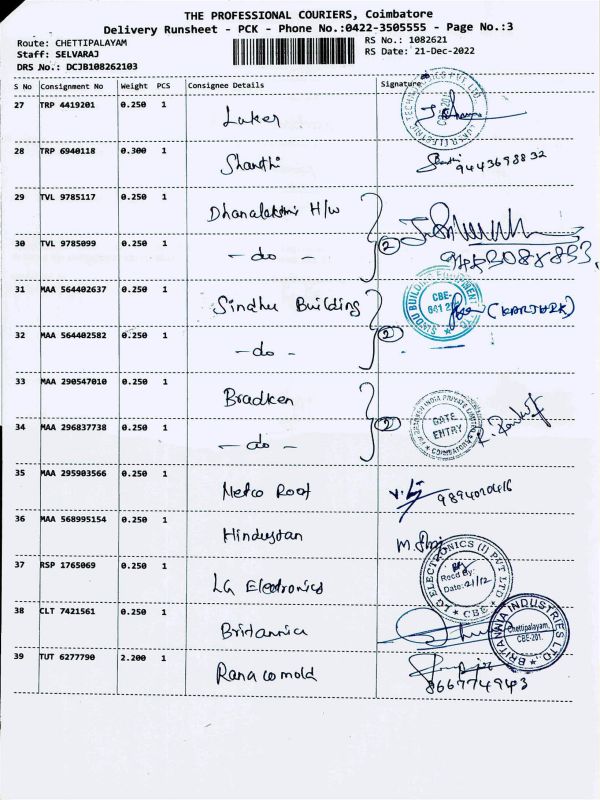 THE PROFESSIONAL COURIERS, Coimbatore
Delivery Runsheet - PCK - Phone No.:0422-3505555 - Page No.:3
Route: CHETTIPALAYAM
RS No.: 1082621
Staff: SELVARAJ
RS Date: 21-Dec-2022
DRS No.: DCJB108262103
S No Consignment No Weight PCS Consignee Details Signature
27 TRP 4419201 0.250 1 Luker
28 TRP 6940118 0.300 1 Shanthi 9443698832
29 TVL 9785117 0.250 1 Dhanalakshmi H/w
30 TVL 9785099 0.250 1 - do - 2
31 MAA 564402637 0.250 1 Sindhu Building CBE- (KARTHIK)
32 MAA 564402582 0.250 1 - do - 2
33 MAA 290547010 0.250 1 Bradken
34 MAA 296837738 0.250 1 - do - 2 GATE ENTRY
35 MAA 295903566 0.250 1 Metco Roof 9894020416
36 MAA 568995154 0.250 1 Hindustan
37 RSP 1765069 0.250 1 LG Electronics LG ELECTRONICS (I) PVT LTD Recd By: Date: 21/12 CBE
38 CLT 7421561 0.250 1 Britannia BRITANNIA INDUSTRIES LTD. Chettipalayam, CBE-201.
39 TUT 6277790 2.200 1 Rana comold 866774943